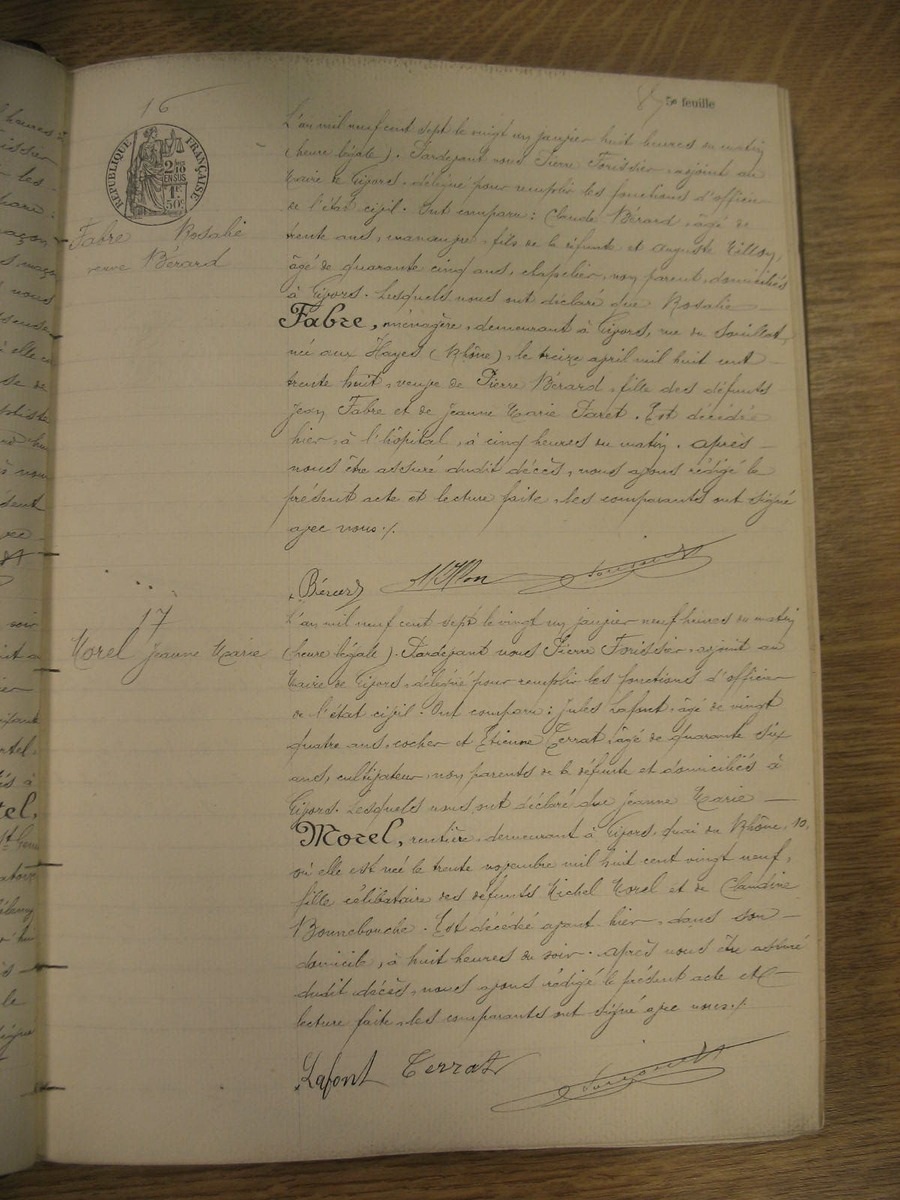 5e feuille
16
RÉPUBLIQUE FRANÇAISE
2/10 EN SUS
1F 50c
Fabre Rosalie
veuve Bérard
L'an mil neuf cent sept le vingt un janvier huit heures du matin
(heure légale). Pardevant nous Pierre Forissier, adjoint au
Maire de Givors, délégué pour remplir les fonctions d'officier
de l'état civil. Ont comparu : Claude Bérard, âgé de
trente ans, manœuvre, fils de la défunte et Auguste Millon,
âgé de quarante cinq ans, chapelier, non parent, domiciliés
à Givors. Lesquels nous ont déclaré que Rosalie
Fabre, ménagère, demeurant à Givors, rue du
née aux Hayes (Rhône), le treize avril mil huit cent
trente huit, veuve de Pierre Bérard, fille des défunts
Jean Fabre et de Jeanne Marie Paret. Est décédée
hier, à l'hôpital, à cinq heures du matin. Après
nous être assuré dudit décès, nous avons rédigé le
présent acte et lecture faite, les comparants ont signé
avec nous ./.
Bérard Millon
17
Morel Jeanne Marie
L'an mil neuf cent sept le vingt un janvier neuf heures du matin
(heure légale). Pardevant nous Pierre Forissier, adjoint au
Maire de Givors, délégué pour remplir les fonctions d'officier
de l'état civil. Ont comparu : Jules Lafont, âgé de vingt
quatre ans, cocher et Etienne Terrat, âgé de quarante six
ans, cultivateur, non parents de la défunte et domiciliés à
Givors. Lesquels nous ont déclaré que Jeanne Marie
Morel, rentière, demeurant à Givors, quai du Rhône, 10,
où elle est née le trente novembre mil huit cent vingt neuf,
fille célibataire des défunts Michel Morel et de Claudine
Bonnebouche. Est décédée avant hier, dans son
domicile, à huit heures du soir. Après nous être assuré
dudit décès, nous avons rédigé le présent acte et
lecture faite, les comparants ont signé avec nous ./.
Lafont Terrat